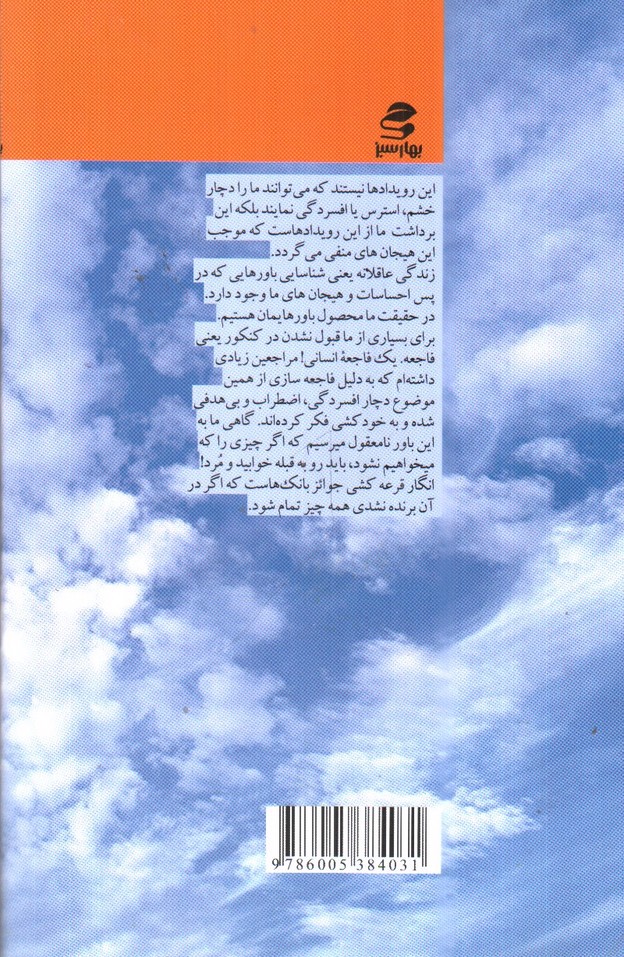 بهار سبز
این رویدادها نیستند که می‌توانند ما را دچار
خشم، استرس یا افسردگی نمایند بلکه این
برداشت ما از این رویدادهاست که موجب
این هیجان های منفی می گردد.
زندگی عاقلانه یعنی شناسایی باورهایی که در
پس احساسات و هیجان های ما وجود دارد.
در حقیقت ما محصول باورهایمان هستیم.
برای بسیاری از ما قبول نشدن در کنکور یعنی
فاجعه. یک فاجعهٔ انسانی! مراجعین زیادی
داشته‌ام که به دلیل فاجعه سازی از همین
موضوع دچار افسردگی، اضطراب و بی‌هدفی
شده و به خودکشی فکر کرده‌اند. گاهی ما به
این باور نامعقول میرسیم که اگر چیزی را که
میخواهیم نشود، باید رو به قبله خوابید و مُرد!
انگار قرعه کشی جوائز بانک‌هاست که اگر در
آن برنده نشدی همه چیز تمام شود.
9 786005 384031